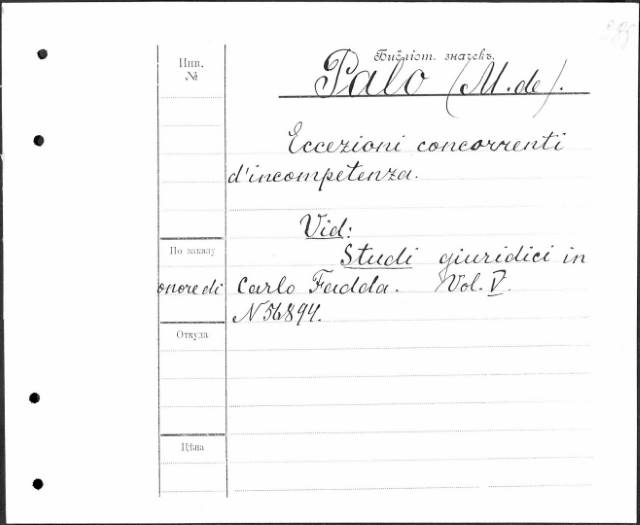 Библіот. значекъ.
Инв.
№
Palo (M. de).
Eccezioni concorrenti
d'incompetenza.
Vid:
По заказу
Studi giuridici in
onore di Carlo Fadda. Vol. V.
N 56894.
Откуда
Цѣна